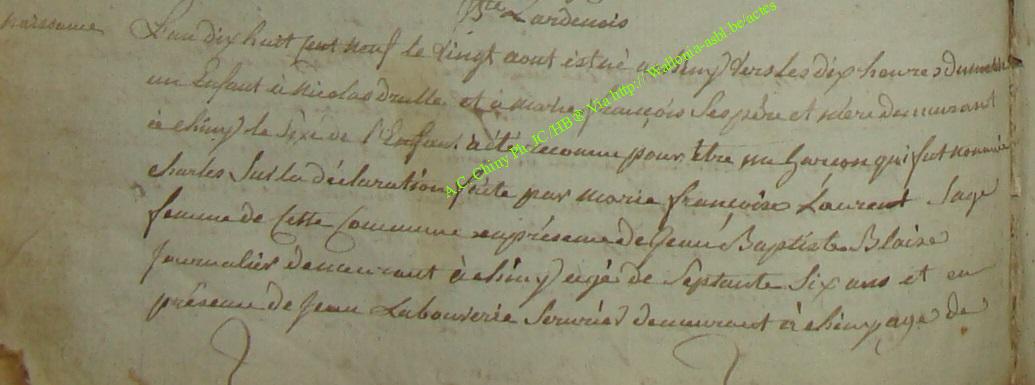 Bte Lardenois
naissance
L'an dix huit cent neuf le vingt aout est né a chiny vers les dix heures du matin
un Enfant à nicolas Drulle et à marie françois ses père et mère demeurant
à chiny le sixe de l'Enfant à été reconnu pour être un Garçon qui fut nommé
charles sur la déclaration faite par marie françoise Laurent sage
femme de cette Commune en présence de Jean Baptiste Blaise
journalier demeurant à chiny agé de Septante Six ans et en
présence de Jean Labouverie demeurant à chiny age de
A.C. Chiny Ph. JC/HB ® Via http://Wallonia-asbl.be/actes